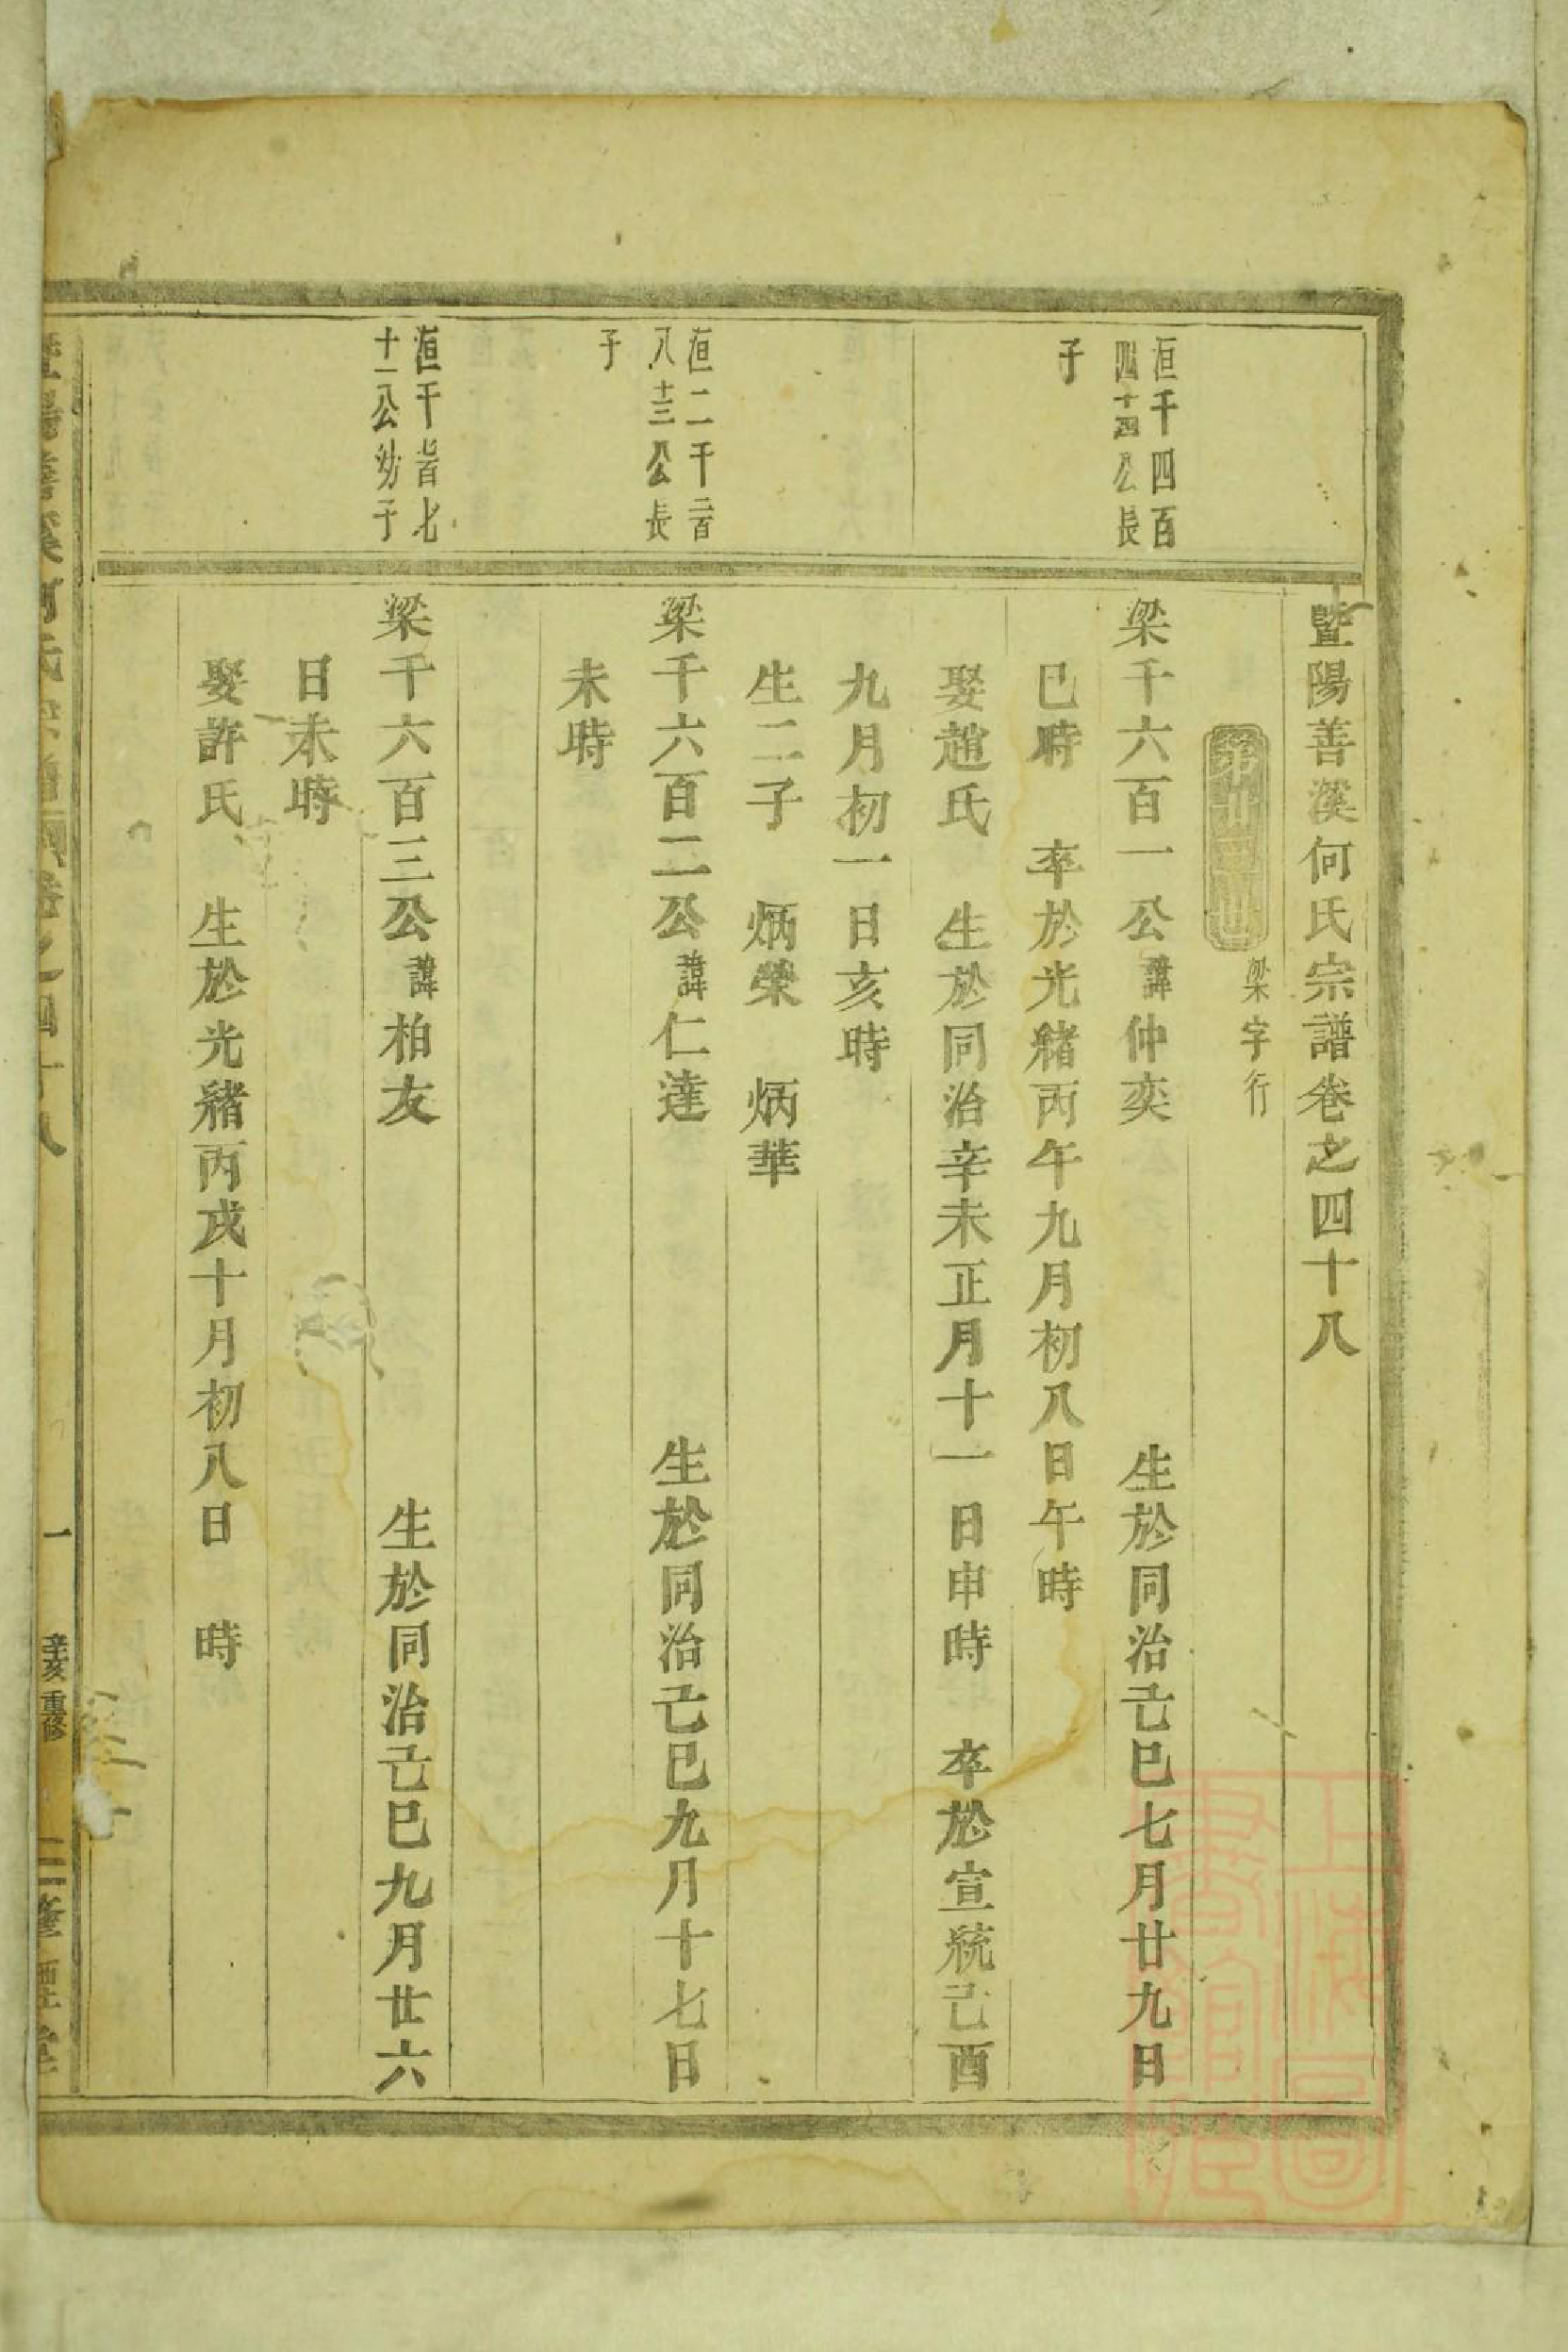 暨陽善溪何氏宗譜卷之四十八
梁字行
洹千四百
四十四公長
子
梁千六百一公諱仲奕 生於同治己巳七月廿九日
巳時 卒於光緒丙午九月初八日午時
娶趙氏 生於同治辛未正月十一日申時 卒於宣統己酉
九月初一日亥時
生二子 炳榮 炳華
洹二千二百
八十三公長
子
梁千六百二公諱仁達 生於同治己巳九月十七日
未時
洹千
十一公幼子
梁千六百三公諱柏友 生於同治己巳九月廿六
日未時
娶許氏 生於光緒丙戌十月初八日 時
一
辛亥重修